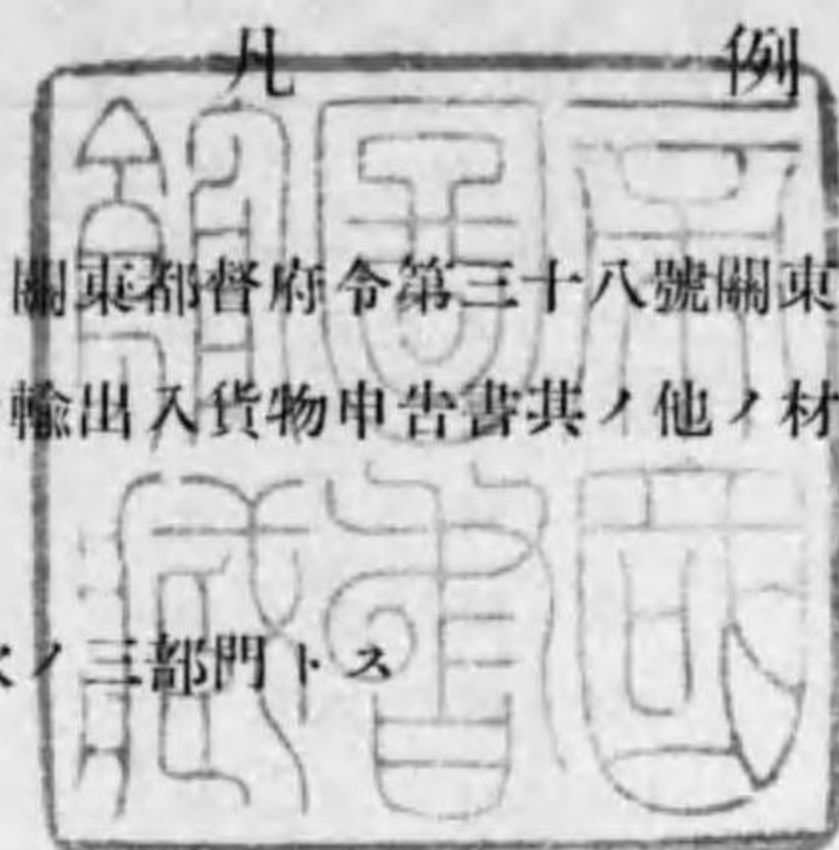 凡例
關東都督府令第三十八號關東
輸出入貨物申告書其ノ他ノ材
ノ三部門トス
帝國圖書館藏